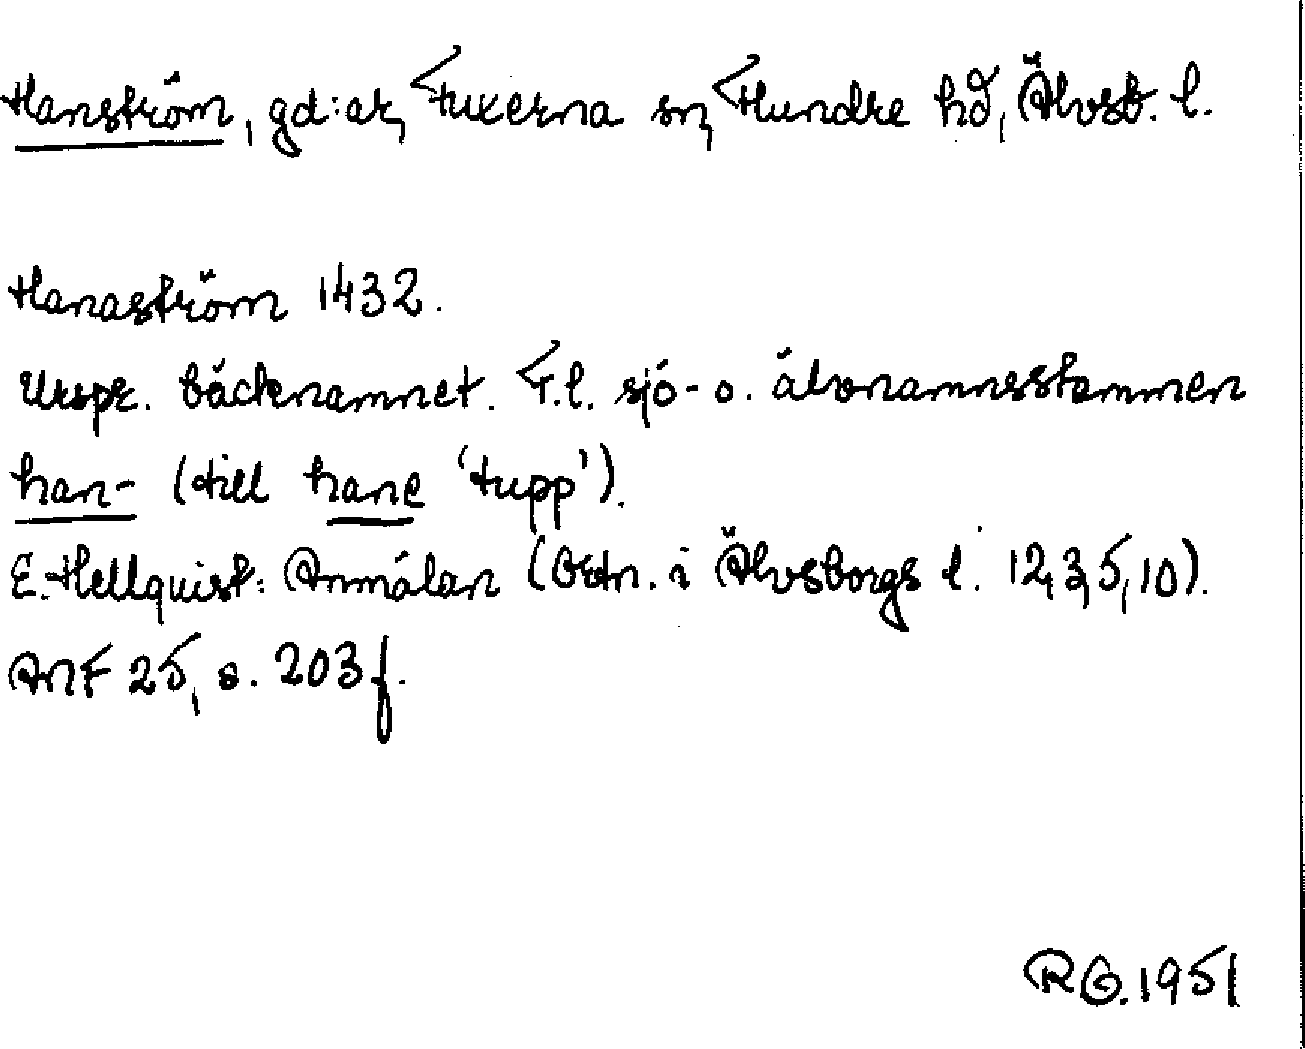 Hanström, gd:ar, Fuxerna sn, Flundre hd, Älvsb. l.
Hanaström 1432.
Urspr. bäcknamnet. T.l. sjö- o. älvnamnsstammen
han- (till hane 'tupp').
E. Hellquist: Anmälan (Ortn. i Älvsborgs l. 12,3,5,10).
ANF 25, s. 203 f.
RG. 1951